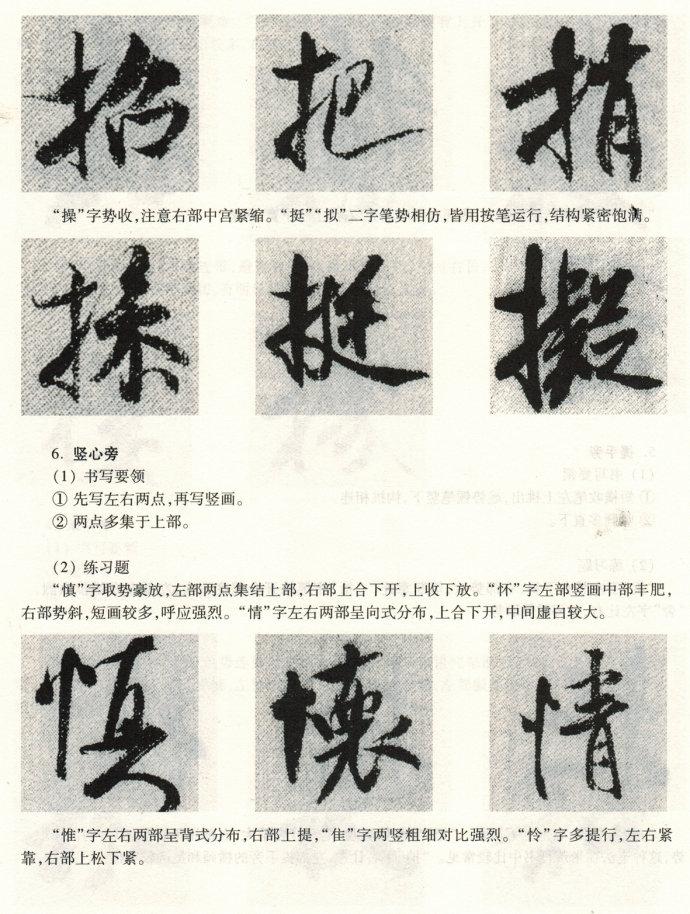 招 把 捎
“操”字势收，注意右部中宫紧缩。“挺”“拟”二字笔势相仿，皆用按笔运行，结构紧密饱满。
操 挺 擬
6. 竖心旁
(1) 书写要领
① 先写左右两点，再写竖画。
② 两点多集于上部。
(2) 练习题
“慎”字取势豪放，左部两点集结上部，右部上合下开，上收下放。“怀”字左部竖画中部丰肥，
右部势斜，短画较多，呼应强烈。“情”字左右两部呈向式分布，上合下开，中间虚白较大。
慎 懷 情
“惟”字左右两部呈背式分布，右部上提，“隹”字两竖粗细对比强烈。“怜”字多提行，左右紧
靠，右部上松下紧。